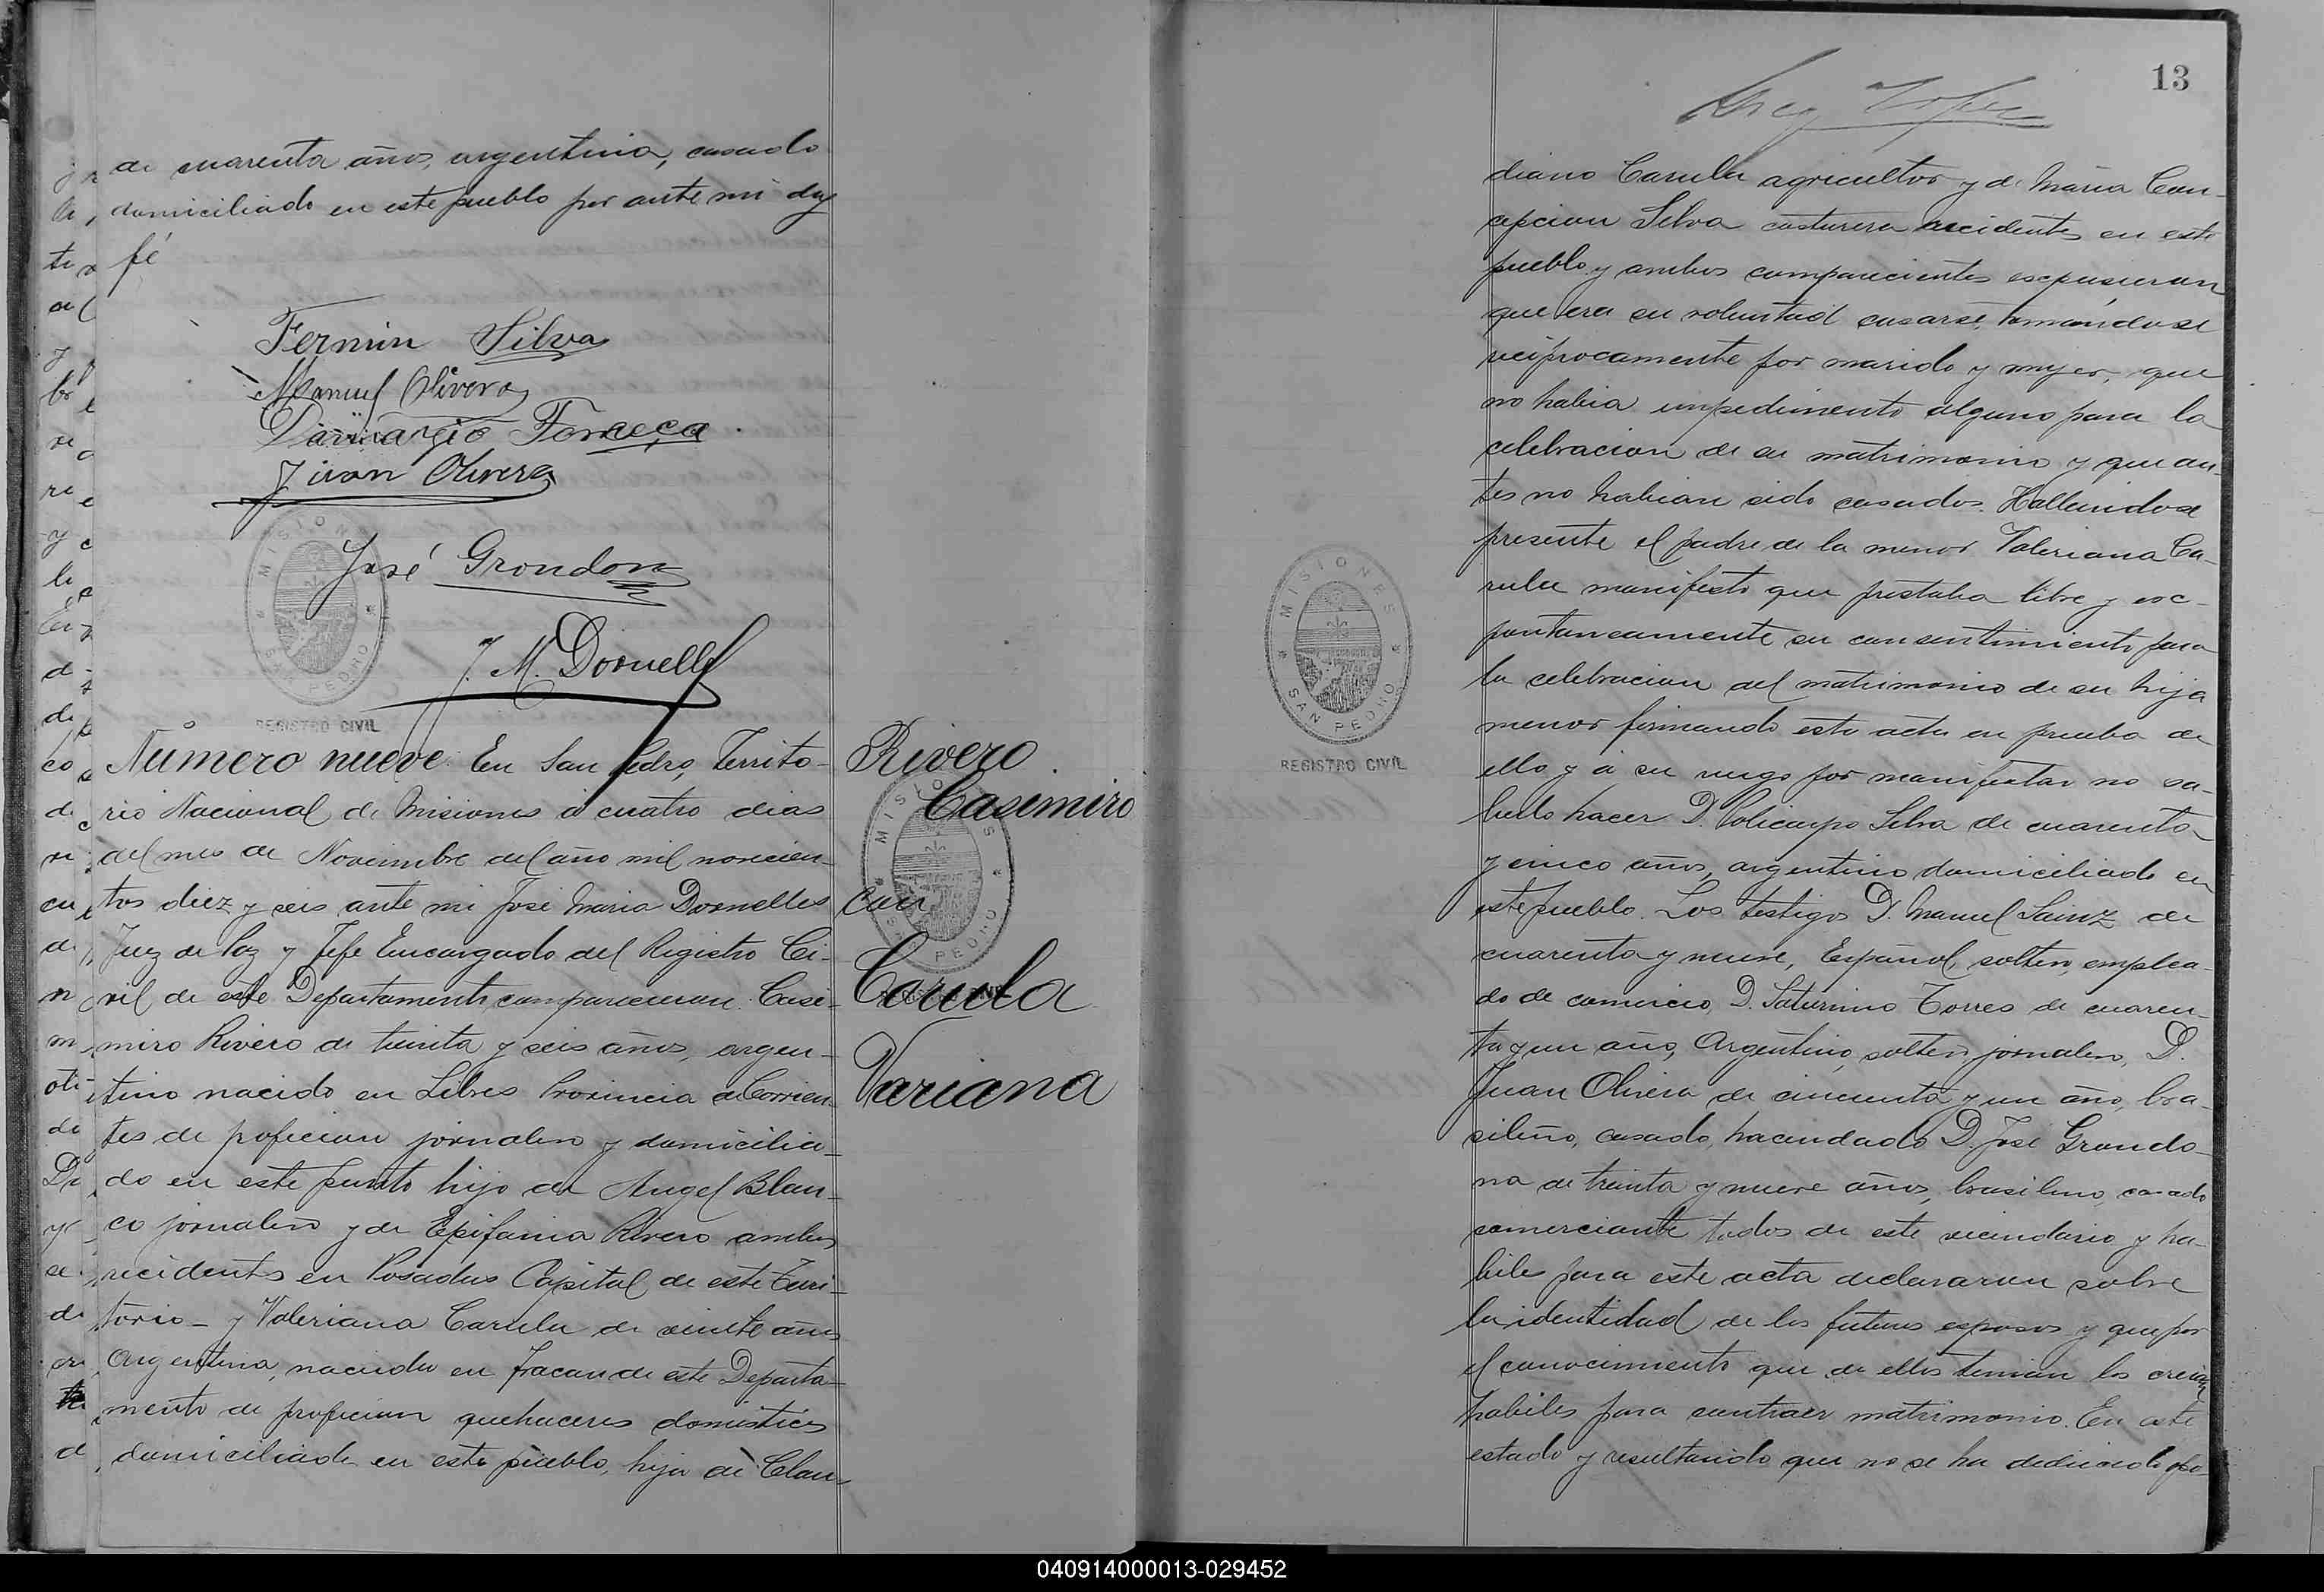 de cuarenta años, argentino, casado
domiciliado en este pueblo por ante mi doy
fé
Fermin Silva
Manuel Olivera
Fonceca
Juan Olivera
José Grondona
J. M. Dornelles
MISIONES
SAN PEDRO
REGISTRO CIVIL
Número nueve. En San Pedro, Territo-
rio Nacional de Misiones á cuatro dias
del mes de Noviembre del año mil novecien-
tos diez y seis ante mi José Maria Dornelles
Juez de Paz y Jefe Encargado del Registro Ci-
vil de este Departamento, comparecieron: Casi-
miro Rivero de treinta y seis años, argen-
tino nacido en Libres Provincia de Corrien-
tes de profecion jornalero y domicilia-
do en este punto hijo de Angel Blan-
co jornalero y de Epifania Rivero ambos
recidentes en Posadas Capital de este Terri-
torio - y Valeriana Carulu de veinte años
Argentina, nacida en Fracan de este Departa-
mento de profecion quehaceres domésticos
domiciliada en este pueblo, hija de Clau-
Rivero
Casimiro
con
Carula
Variana
MISIONES
SAN PEDRO
13
diano Carulu agricultor y de Maria Con-
cepcion Silva costurera recidentes en este
pueblo y ambos comparecientes escpusieron
que era su voluntad casarse, tomándose
reciprocamente por marido y mujer, que
no habia impedimento alguno para la
celebracion de su matrimonio y que an-
tes no habian sido casados. Hallandose
presente el padre de la menor Valeriana Ca-
rulu manifesto que prestaba libre y esc-
pontaneamente su consentimiento para
la celebracion del matrimonio de su hija
menor firmando esta acta en prueba de
ello y á su ruego por manifestar no sa-
berlo hacer D. Policarpo Silva de cuarenta
y cinco años, argentino domiciliado en
este pueblo. Los testigos D. Manuel Sainz de
cuarenta y nueve, Español, soltero, emplea-
do de comercio, D. Saturnino Torres de cuaren-
ta y un año, Argentino, soltero, jornalero, D.
Juan Olivera de cincuenta y un año, bra-
sileño, casado, hacendado D. José Grondo-
na de treinta y nueve años, brasileno, casado
comerciante todos de este vecindario y ha-
biles para este acta declararon sobre
la identidad de los futuros esposos y que por
el conocimiento que de ellos tenian los creian
habiles para contraer matrimonio. En este
estado y resultando que no se ha deducido opo-
MISIONES
SAN PEDRO
REGISTRO CIVIL
040914000013-029452